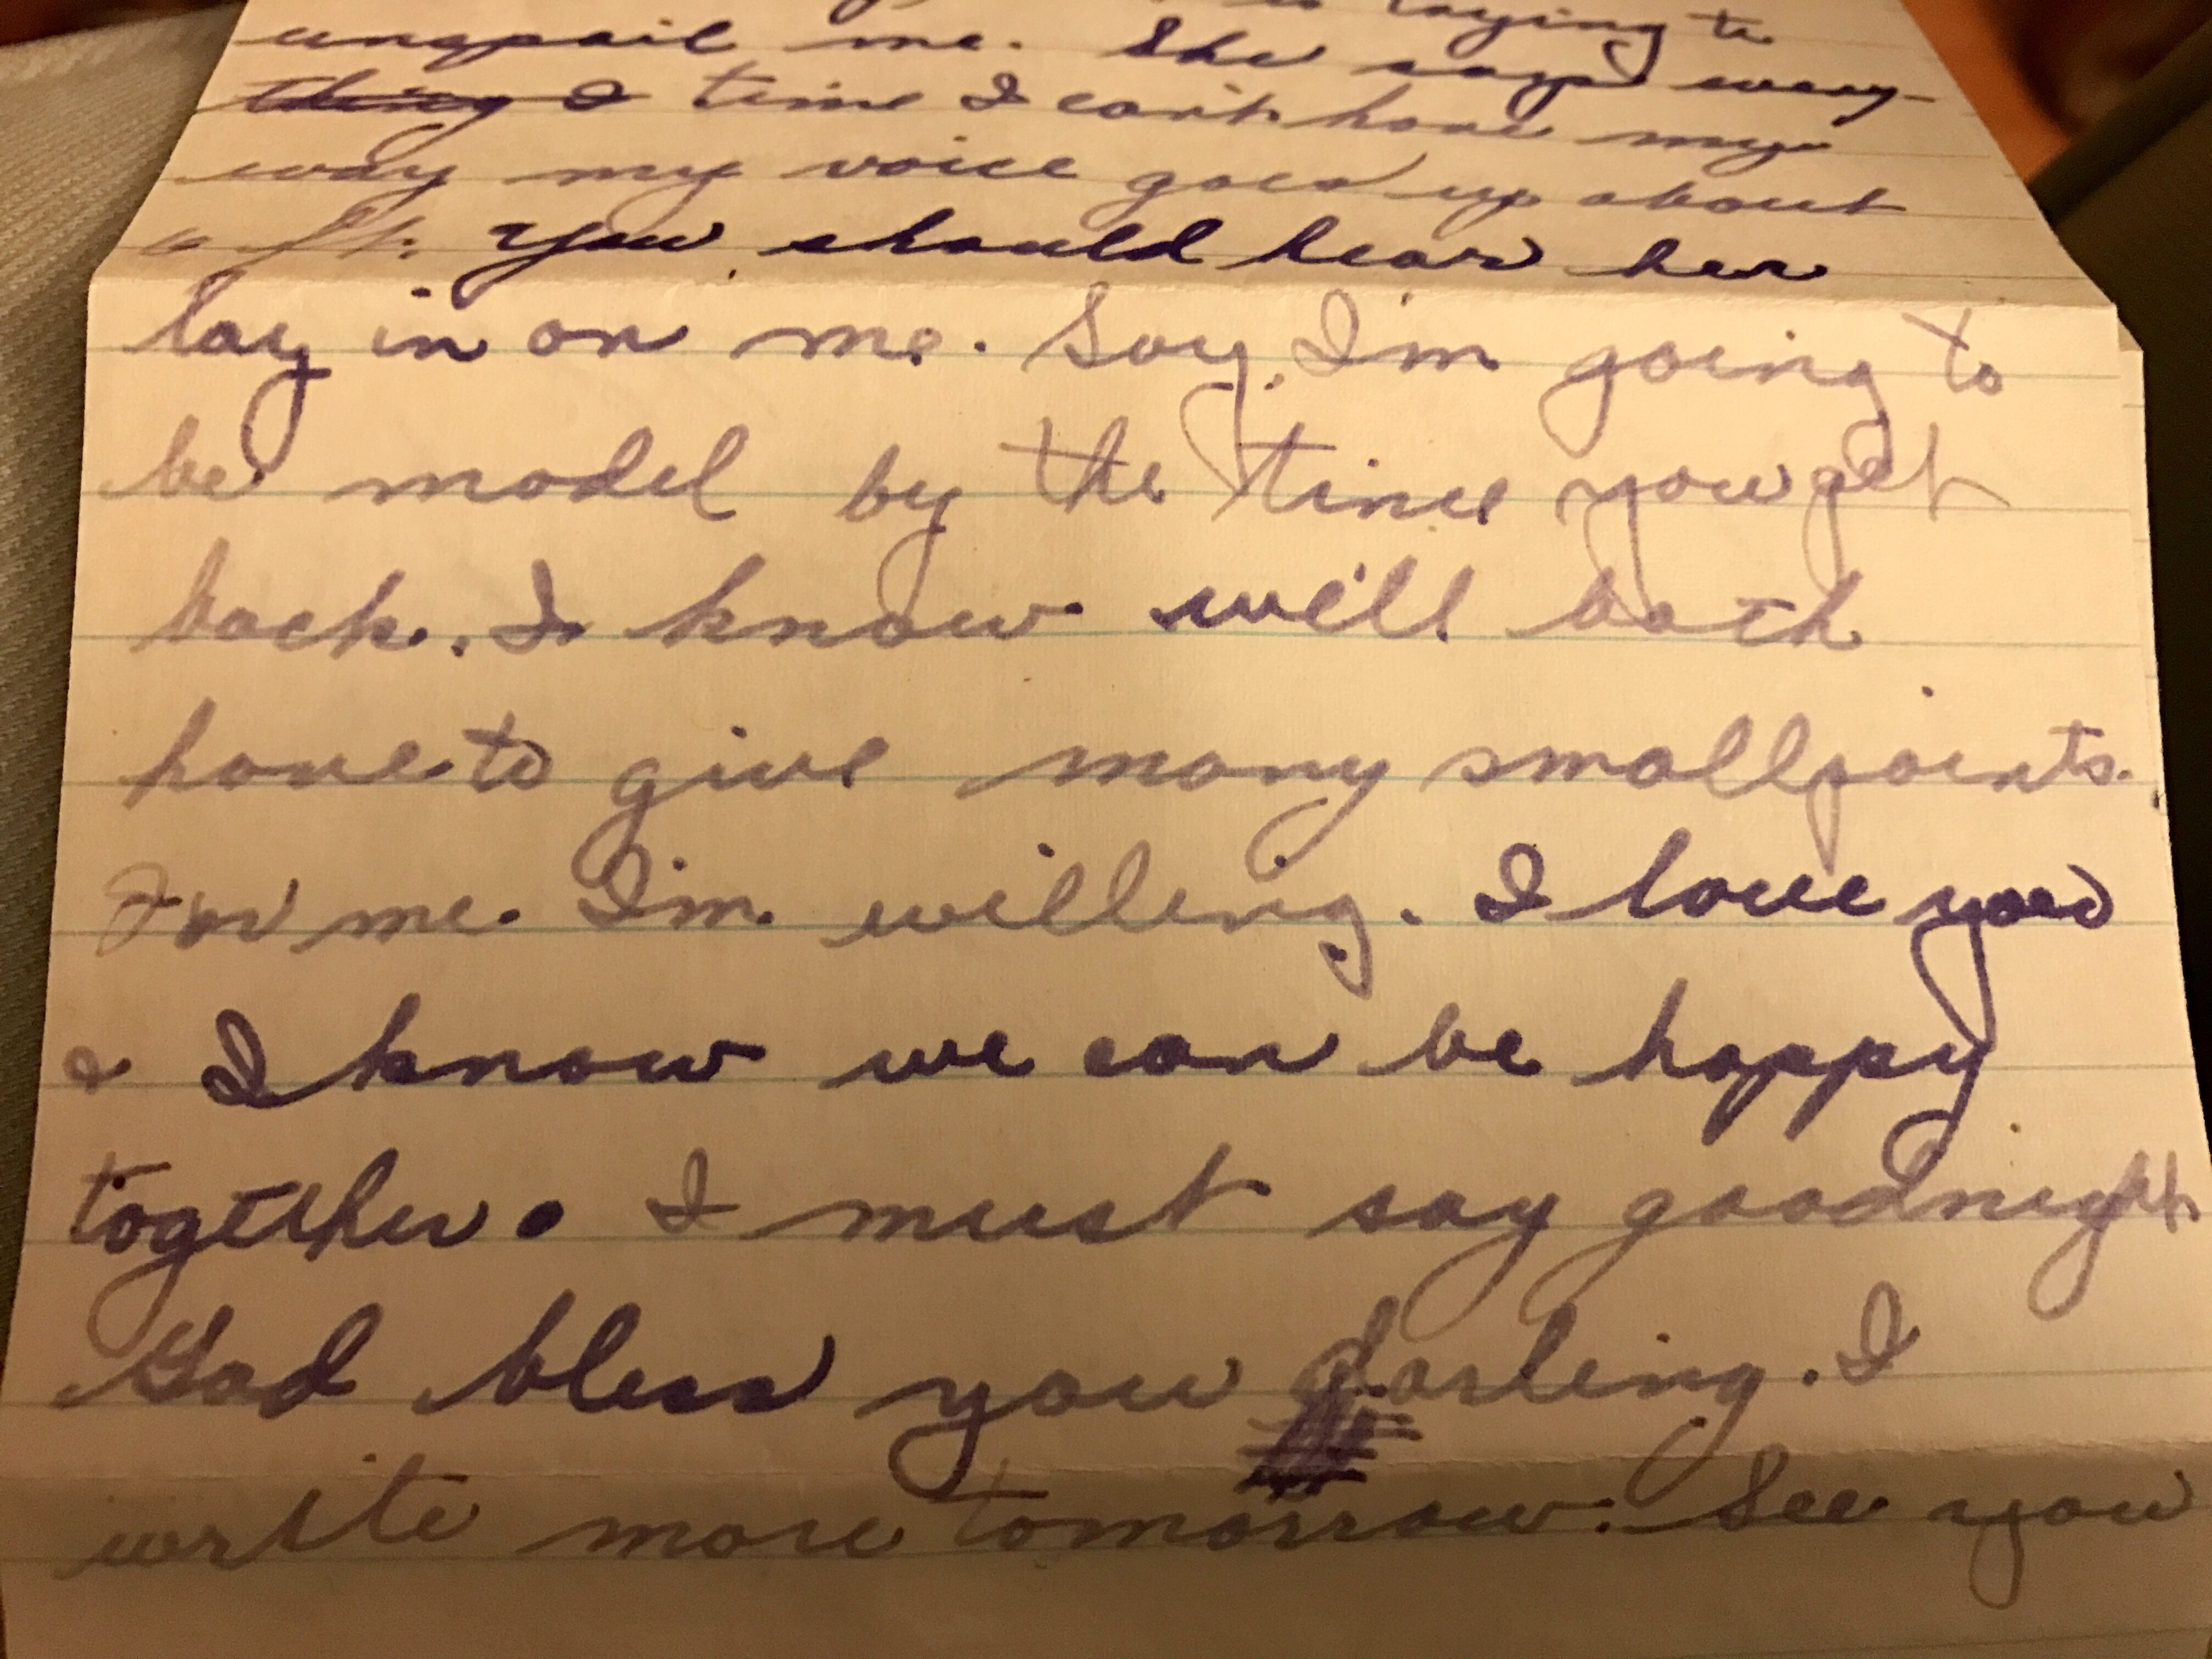 trying to
unspoil me. She says every-
thing I time I can't have my
way my voice goes up about
You should hear her
lay in on me. Say, I'm going to
be model by the time you get
back. I know we'll both
have to give many small points.
For me. I'm willing. I love you
& I know we can be happy
together. I must say goodnight
God bless you darling. I
write more tomorrow. See you